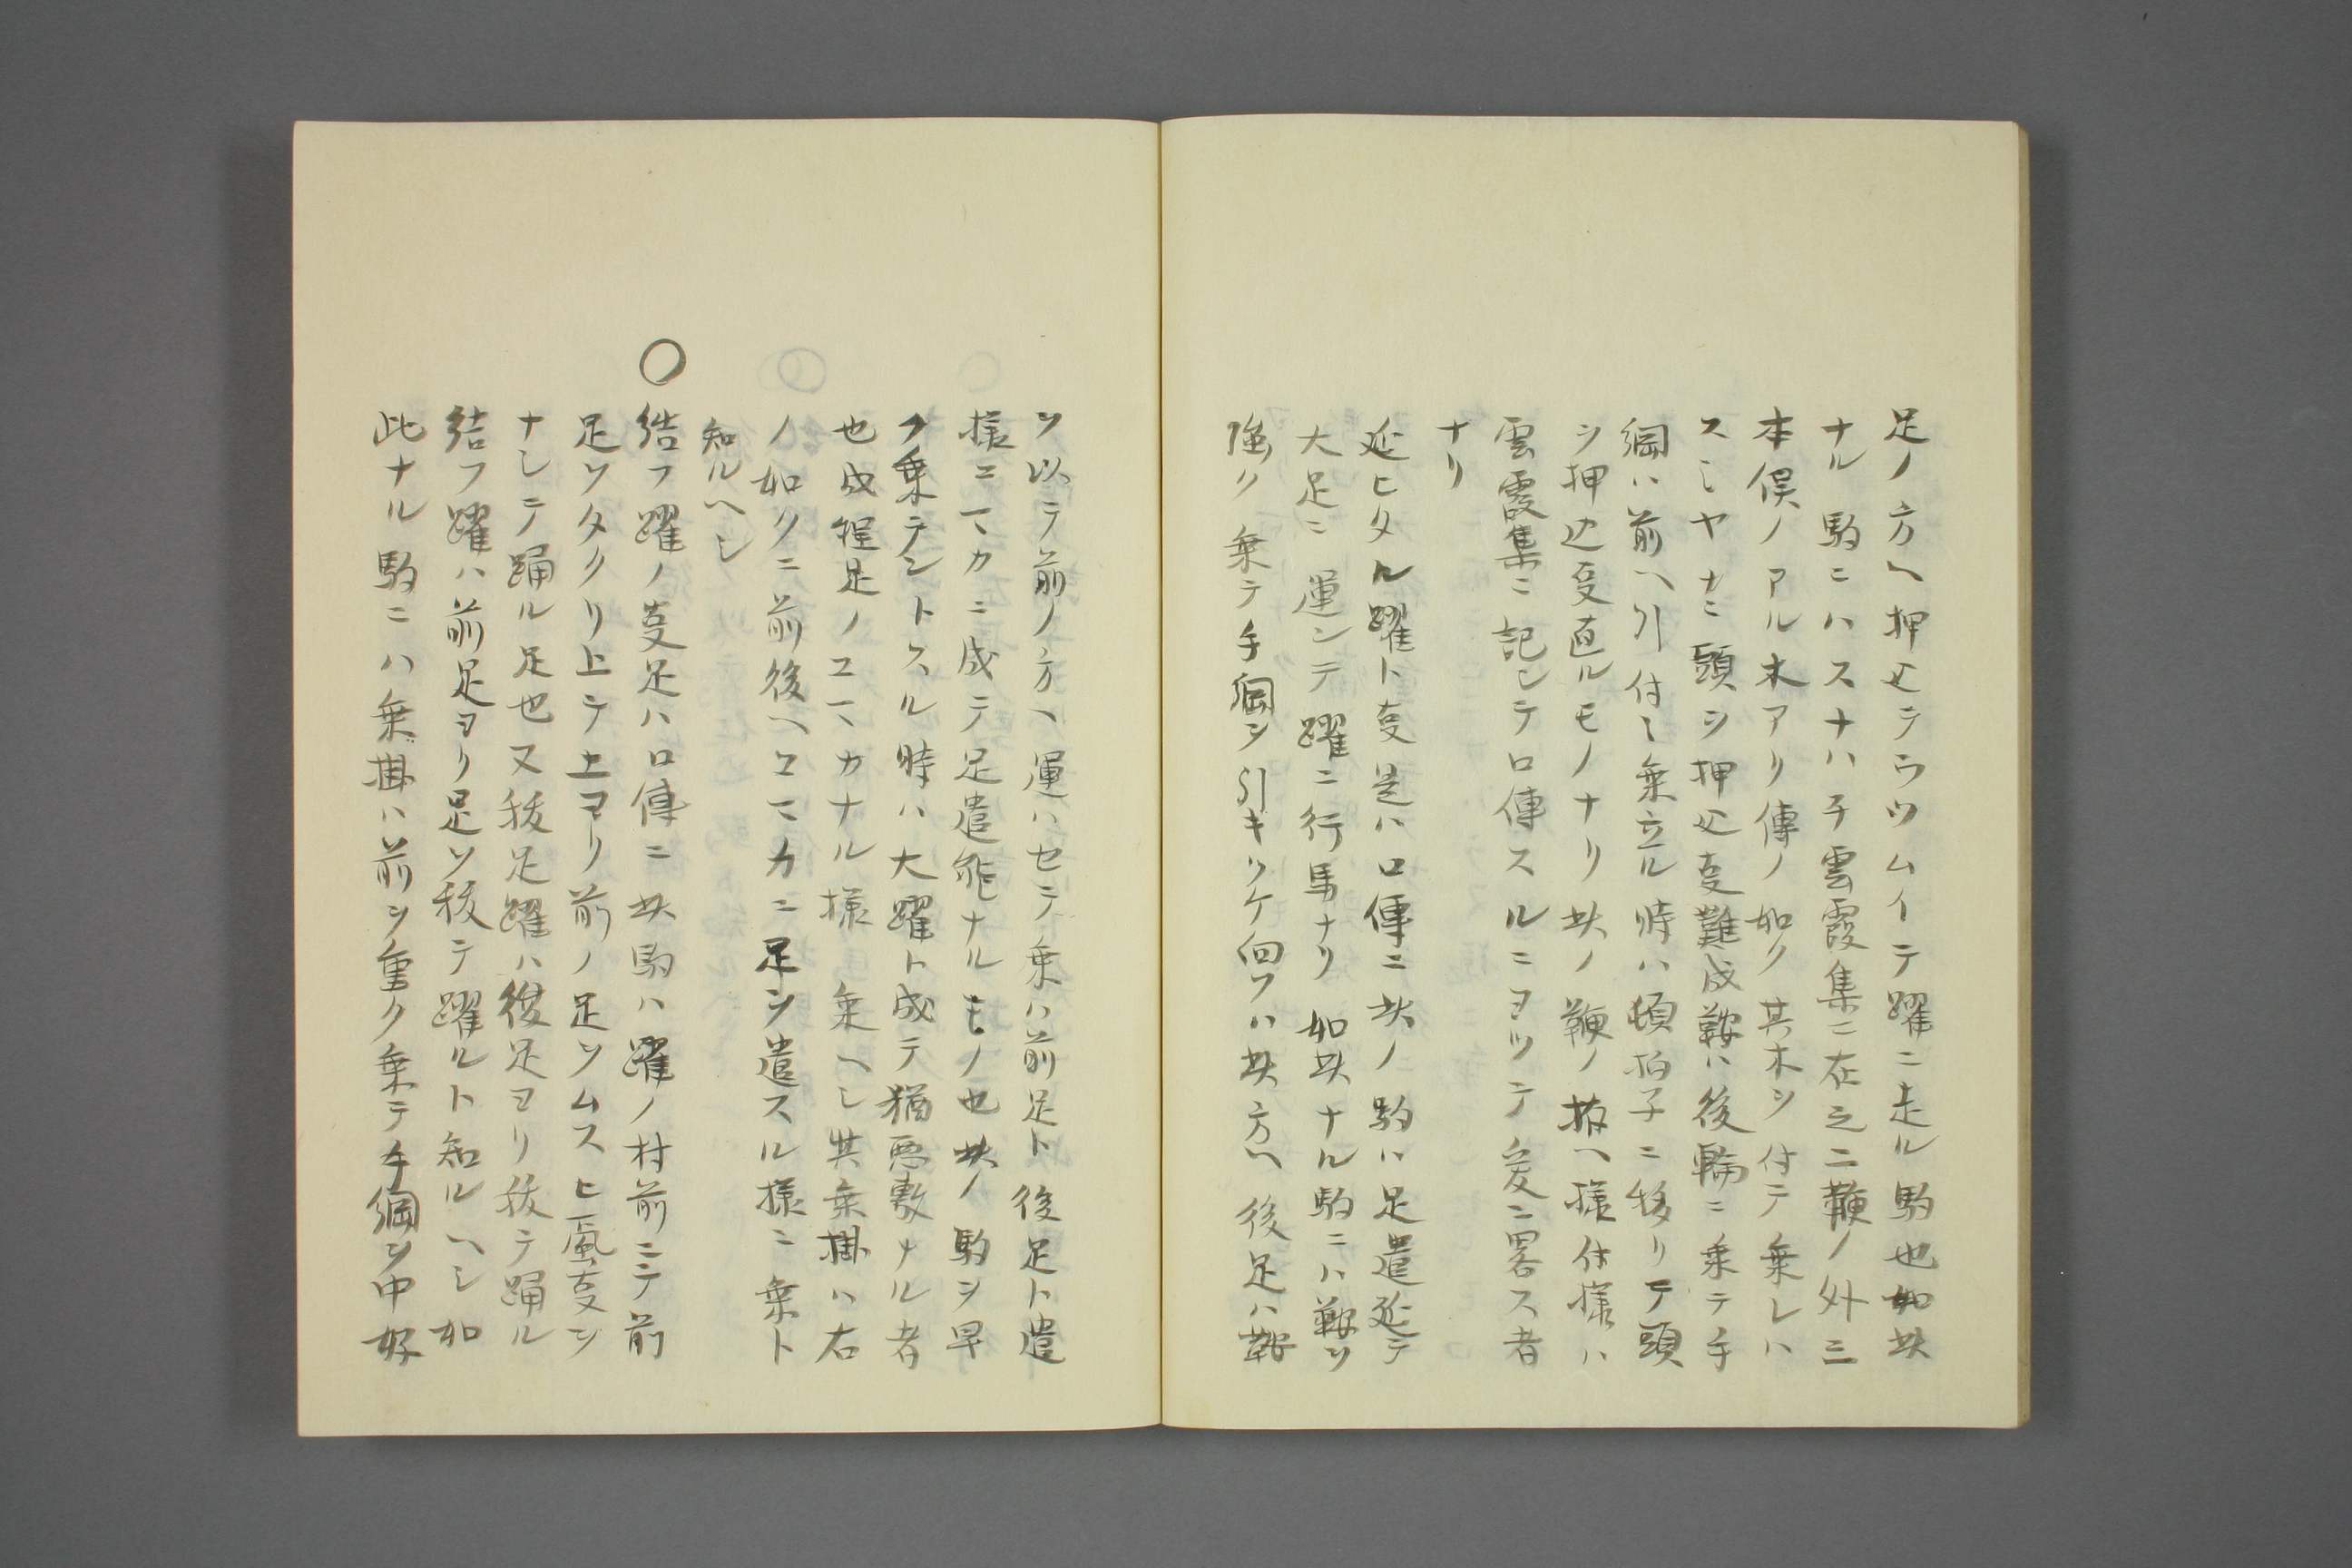 足ノ方ヘ押込テウツムイテ躍ニ走ル駒也如此
ナル駒ニハスナハチ雲霞集ニ在之二鞭ノ外三
本俣ノアル木アリ傳ノ如ク其木ヲ付テ乗レハ
スミヤカニ頭ヲ押込叓難成鞍ハ後輪ニ乗テ手
綱ハ前ヘ引付ミ乗立ル時ハ頓拍子ニ移リテ頭
ヲ押込叓直ルモノナリ此ノ鞭ノ拵ヘ様仕様ハ
雲霞集ニ記シテロ傳スルニヨツテ爰ニ畧ス者
ナリ
延ヒタル躍ト叓是ハロ傳ニ此ノ駒ハ足遣延テ
大足ニ運ンテ躍ニ行馬ナリ如此ナル駒ニハ鞍ヲ
強ク乗テ手綱ヲ引キツケ向フハ此方ヘ後足ハ鞍
ヲ以テ前ノ方ヘ運ハセテ乗ハ前足ト後足ト遣
様コマカニ成テ足遣能ナルモノ也此ノ駒ヲ早
ク乗テントスル時ハ大躍ト成テ猶悪敷ナル者
也成程足ノコマカナル様乗ヘシ其乗掛ハ右
ノ如クニ前後ヘコマカニ足ヲ遣スル様ニ乗ト
知ルヘシ
○結フ躍ノ叓足ハロ傳ニ此駒ハ躍ノ村前ニテ前
足ヲタクリ上テ上ヨリ前ノ足ヲムスヒ風叓ヲ
ナシテ踊ル足也又抜足躍ハ後足ヨリ抜テ踊ル
結フ躍ハ前足ヨリ足ヲ抜テ躍ルト知ルヘシ如
此ナル駒ニハ乗掛ハ前ヲ重ク乗テ手綱ヲ中好